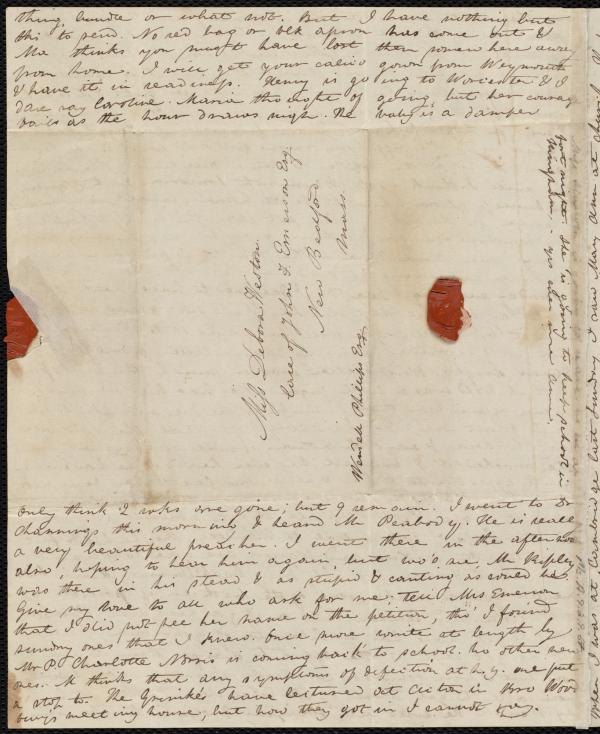 thing, bundle or what not. But I have nothing but
this to send. No red bag or blk apron has come out &
Ma thinks you must have lost them somewhere away
from home. I will get your calico gown from Weymouth
& have it in readiness. Henry is going to Worcester & I
dare say Caroline. Maria thought of going, but her courage
fails as the hour draws nigh. The baby is a damper
fortnight. She is going to keep school in
Kingston
Miss Debora Weston.
Care of John F. Emerson Esq.
New Bedford
Mass.
Wendell Phillips Esq.
only think 2 wks are gone; but 9 remain. I went to Dr
Channings this morning & heard Mr Peabody. He is really
a very beautiful preacher. I went there in the afternoon
also, hoping to hear him again, but wo's me, Mr Ripley
was there in his stead & as stupid & canting as could be.
Give my love to all who ask for me; tell Mrs Emerson
that I did not see her name on the petition, tho' I found
sundry ones that I knew. Once more write at length by
Mr P. Charlotte Norris is coming back to school. no other new
ones. M thinks that any symptoms of defection at N.Y. are put
a stop to. The Grimkés have lectured at Acton in Bro Wood
bury's meeting house, but how they got in I cannot say.
when I was at Cambridge last Sunday I saw Mary Ann at church